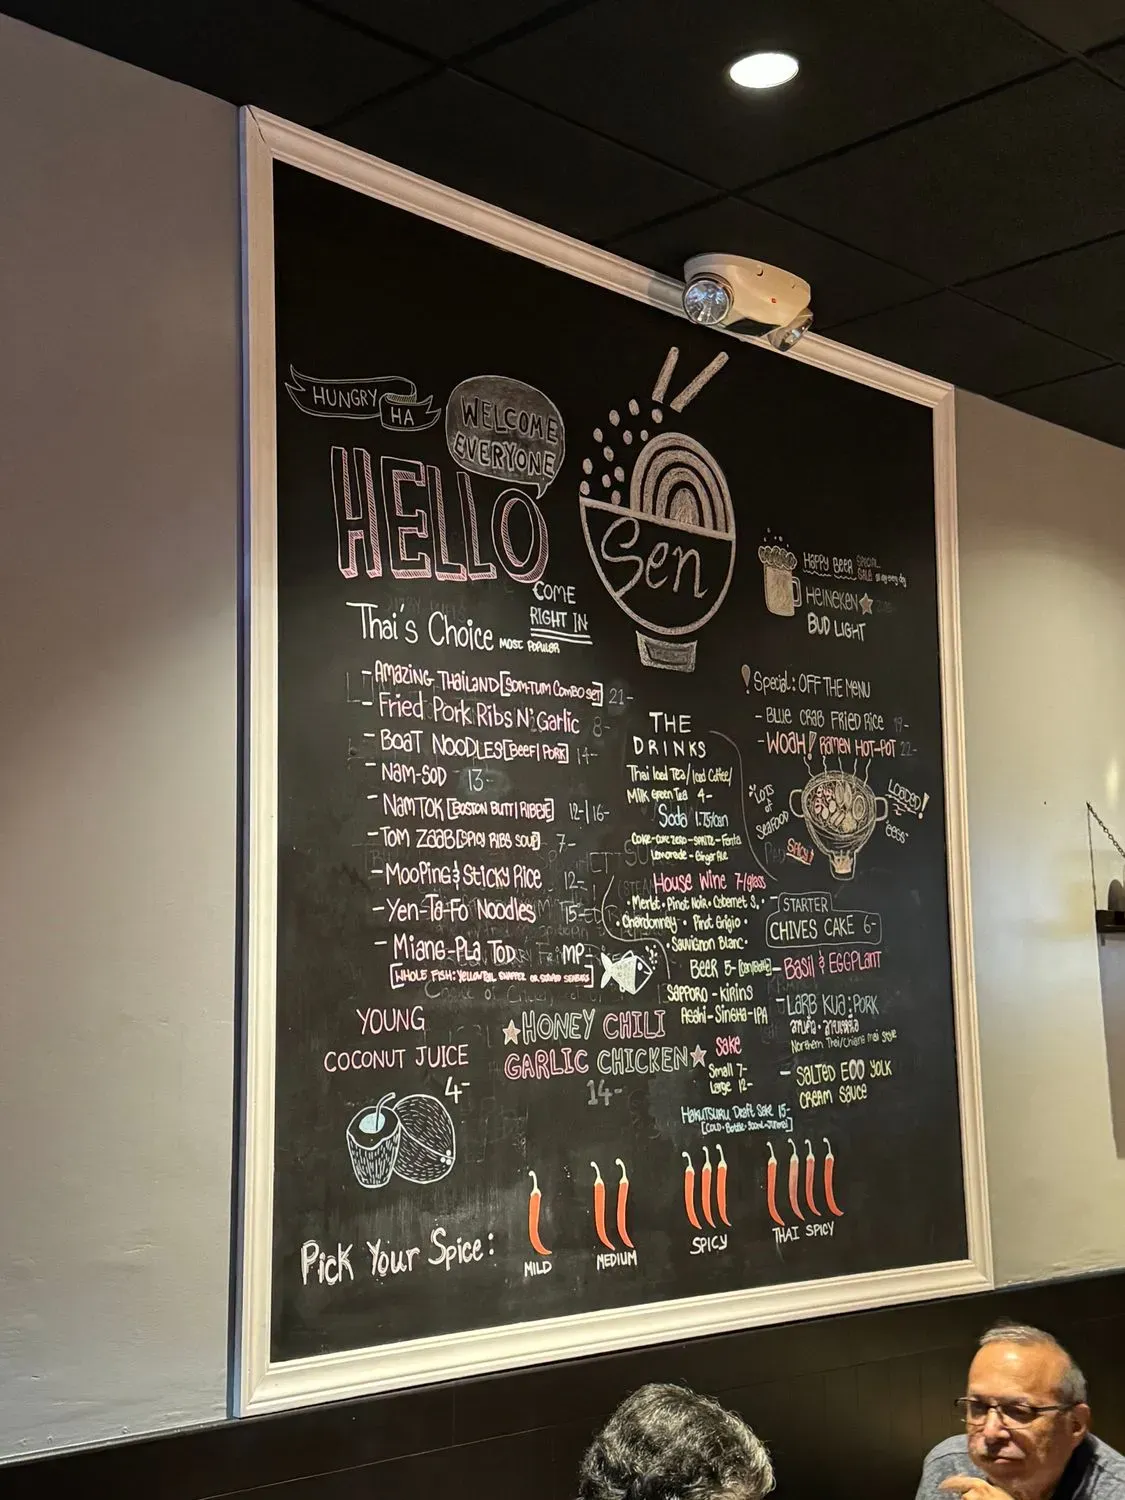 HUNGRY
HA
WELCOME
EVERYONE
HELLO
COME
RIGHT IN
Sen
Thai's Choice MOST POPULAR
- AMAZING THAILAND [SOM-TUM COMBO SET] 21-
- Fried Pork Ribs N' Garlic 8-
- BOAT NOODLES [BEEF | PORK] 14-
- NAM-SOD 13-
- NAMTOK [BOSTON BUTT | RIBEYE] 12-|16-
- TOM ZAAB [SPICY RIBS SOUP] 7-
- MOOPING & STICKY RICE 12-
- YEN-TA-FO NOODLES 15-
- MIANG-PLA TOD MP-
[WHOLE FISH: YELLOWTAIL SNAPPER OR
YOUNG
COCONUT JUICE
4-
☆HONEY CHILI
GARLIC CHICKEN☆
14-
THE
DRINKS
Thai Iced Tea/Iced Coffee/
Milk Green Tea 4-
Soda 1.75/can
COKE-COKE ZERO-SPRITE-Fanta
Lemonade - Ginger Ale
HOUSE WINE 7-/glass
• Merlot • Pinot Noir • Cabernet S. •
• Chardonnay • Pinot Grigio •
• Sauvignon Blanc •
BEER 5-
SAPPORO - KIRINS
ASAHI - SINGHA - IPA
SAKE
Small 7-
Large 12-
HAKUTSURU Draft Sake 15-
HAPPY BEER SPECIAL
HEINEKEN☆
BUD LIGHT
! Special: OFF THE MENU
- BLUE CRAB FRIED RICE 19-
- WOAH! RAMEN HOT-POT 22-
"LOTS
OF
SEAFOOD
LOADED!
SPICY!
- STARTER
CHIVES CAKE 6-
- BASIL & EGGPLANT
- LARB KUA: PORK
Northern Thai/Chiang Mai Style
- SALTED EGG YOLK
CREAM SAUCE
Pick Your Spice:
MILD
MEDIUM
SPICY
THAI SPICY